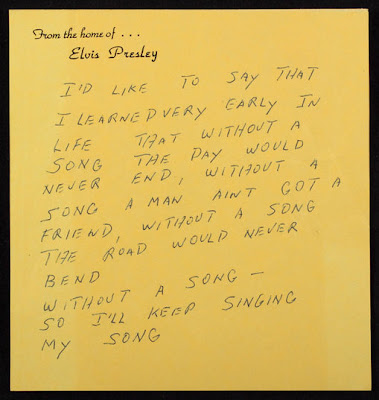 From the home of . . .
Elvis Presley
I'D LIKE TO SAY THAT
I LEARNED VERY EARLY IN
LIFE THAT WITHOUT A
SONG THE DAY WOULD
NEVER END, WITHOUT A
SONG A MAN AINT GOT A
FRIEND, WITHOUT A SONG
THE ROAD WOULD NEVER
BEND
WITHOUT A SONG —
SO I'LL KEEP SINGING
MY SONG